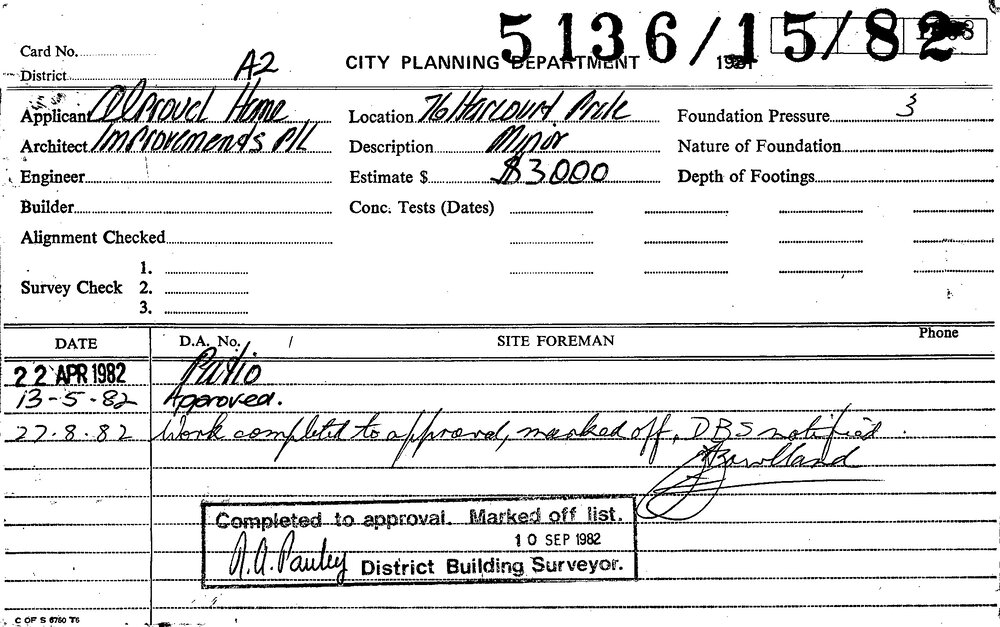 5136/15/82
Card No.
District A2
CITY PLANNING DEPARTMENT
Applicant Alprovel Home
Location 76 Harcourt Prde
Foundation Pressure 3
Architect Improvements P/L
Description Minor
Nature of Foundation
Engineer
Estimate $ $3000
Depth of Footings
Builder
Conc. Tests (Dates)
Alignment Checked
1.
Survey Check 2.
3.
DATE D.A. No. / SITE FOREMAN Phone
22 APR 1982 Patio
13-5-82 Approved.
27.8.82 Work completed to approval, marked off, DBS notified.
Completed to approval. Marked off list.
10 SEP 1982
R.A. Pauley District Building Surveyor.
C OF S 6760 T6